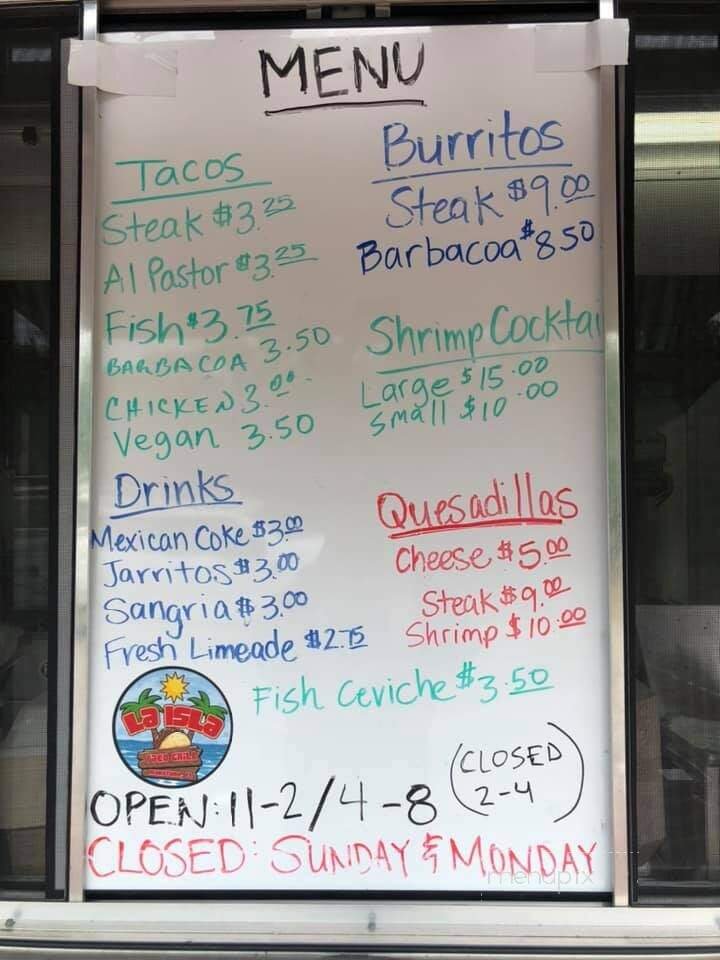 MENU
Tacos
Steak $3.25
Al Pastor $3.25
Fish $3.75
BARBACOA 3.50
CHICKEN 3.00
Vegan 3.50
Burritos
Steak $9.00
Barbacoa $8.50
Shrimp Cocktai
Large $15.00
Small $10.00
Drinks
Mexican Coke $3.00
Jarritos $3.00
Sangria $3.00
Fresh Limeade $2.75
Quesadillas
Cheese $5.00
Steak $9.00
Shrimp $10.00
Fish Ceviche $3.50
LA ISLA
OPEN: 11-2/4-8
(CLOSED
2-4)
CLOSED: SUNDAY & MONDAY
menupix